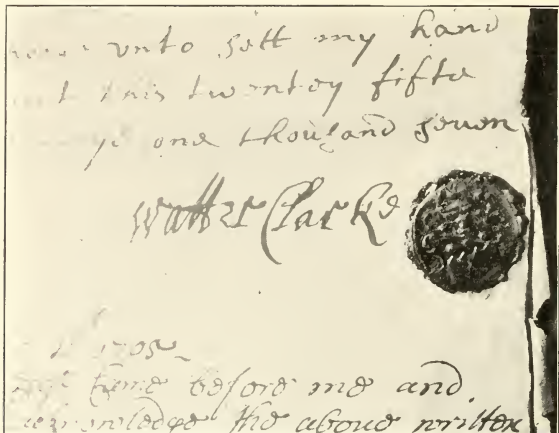 vnto sett my hand
this twentey fifte
ye one thousand seven
Walter Clarke
1705
Came before me and
acknowledge the aboue written